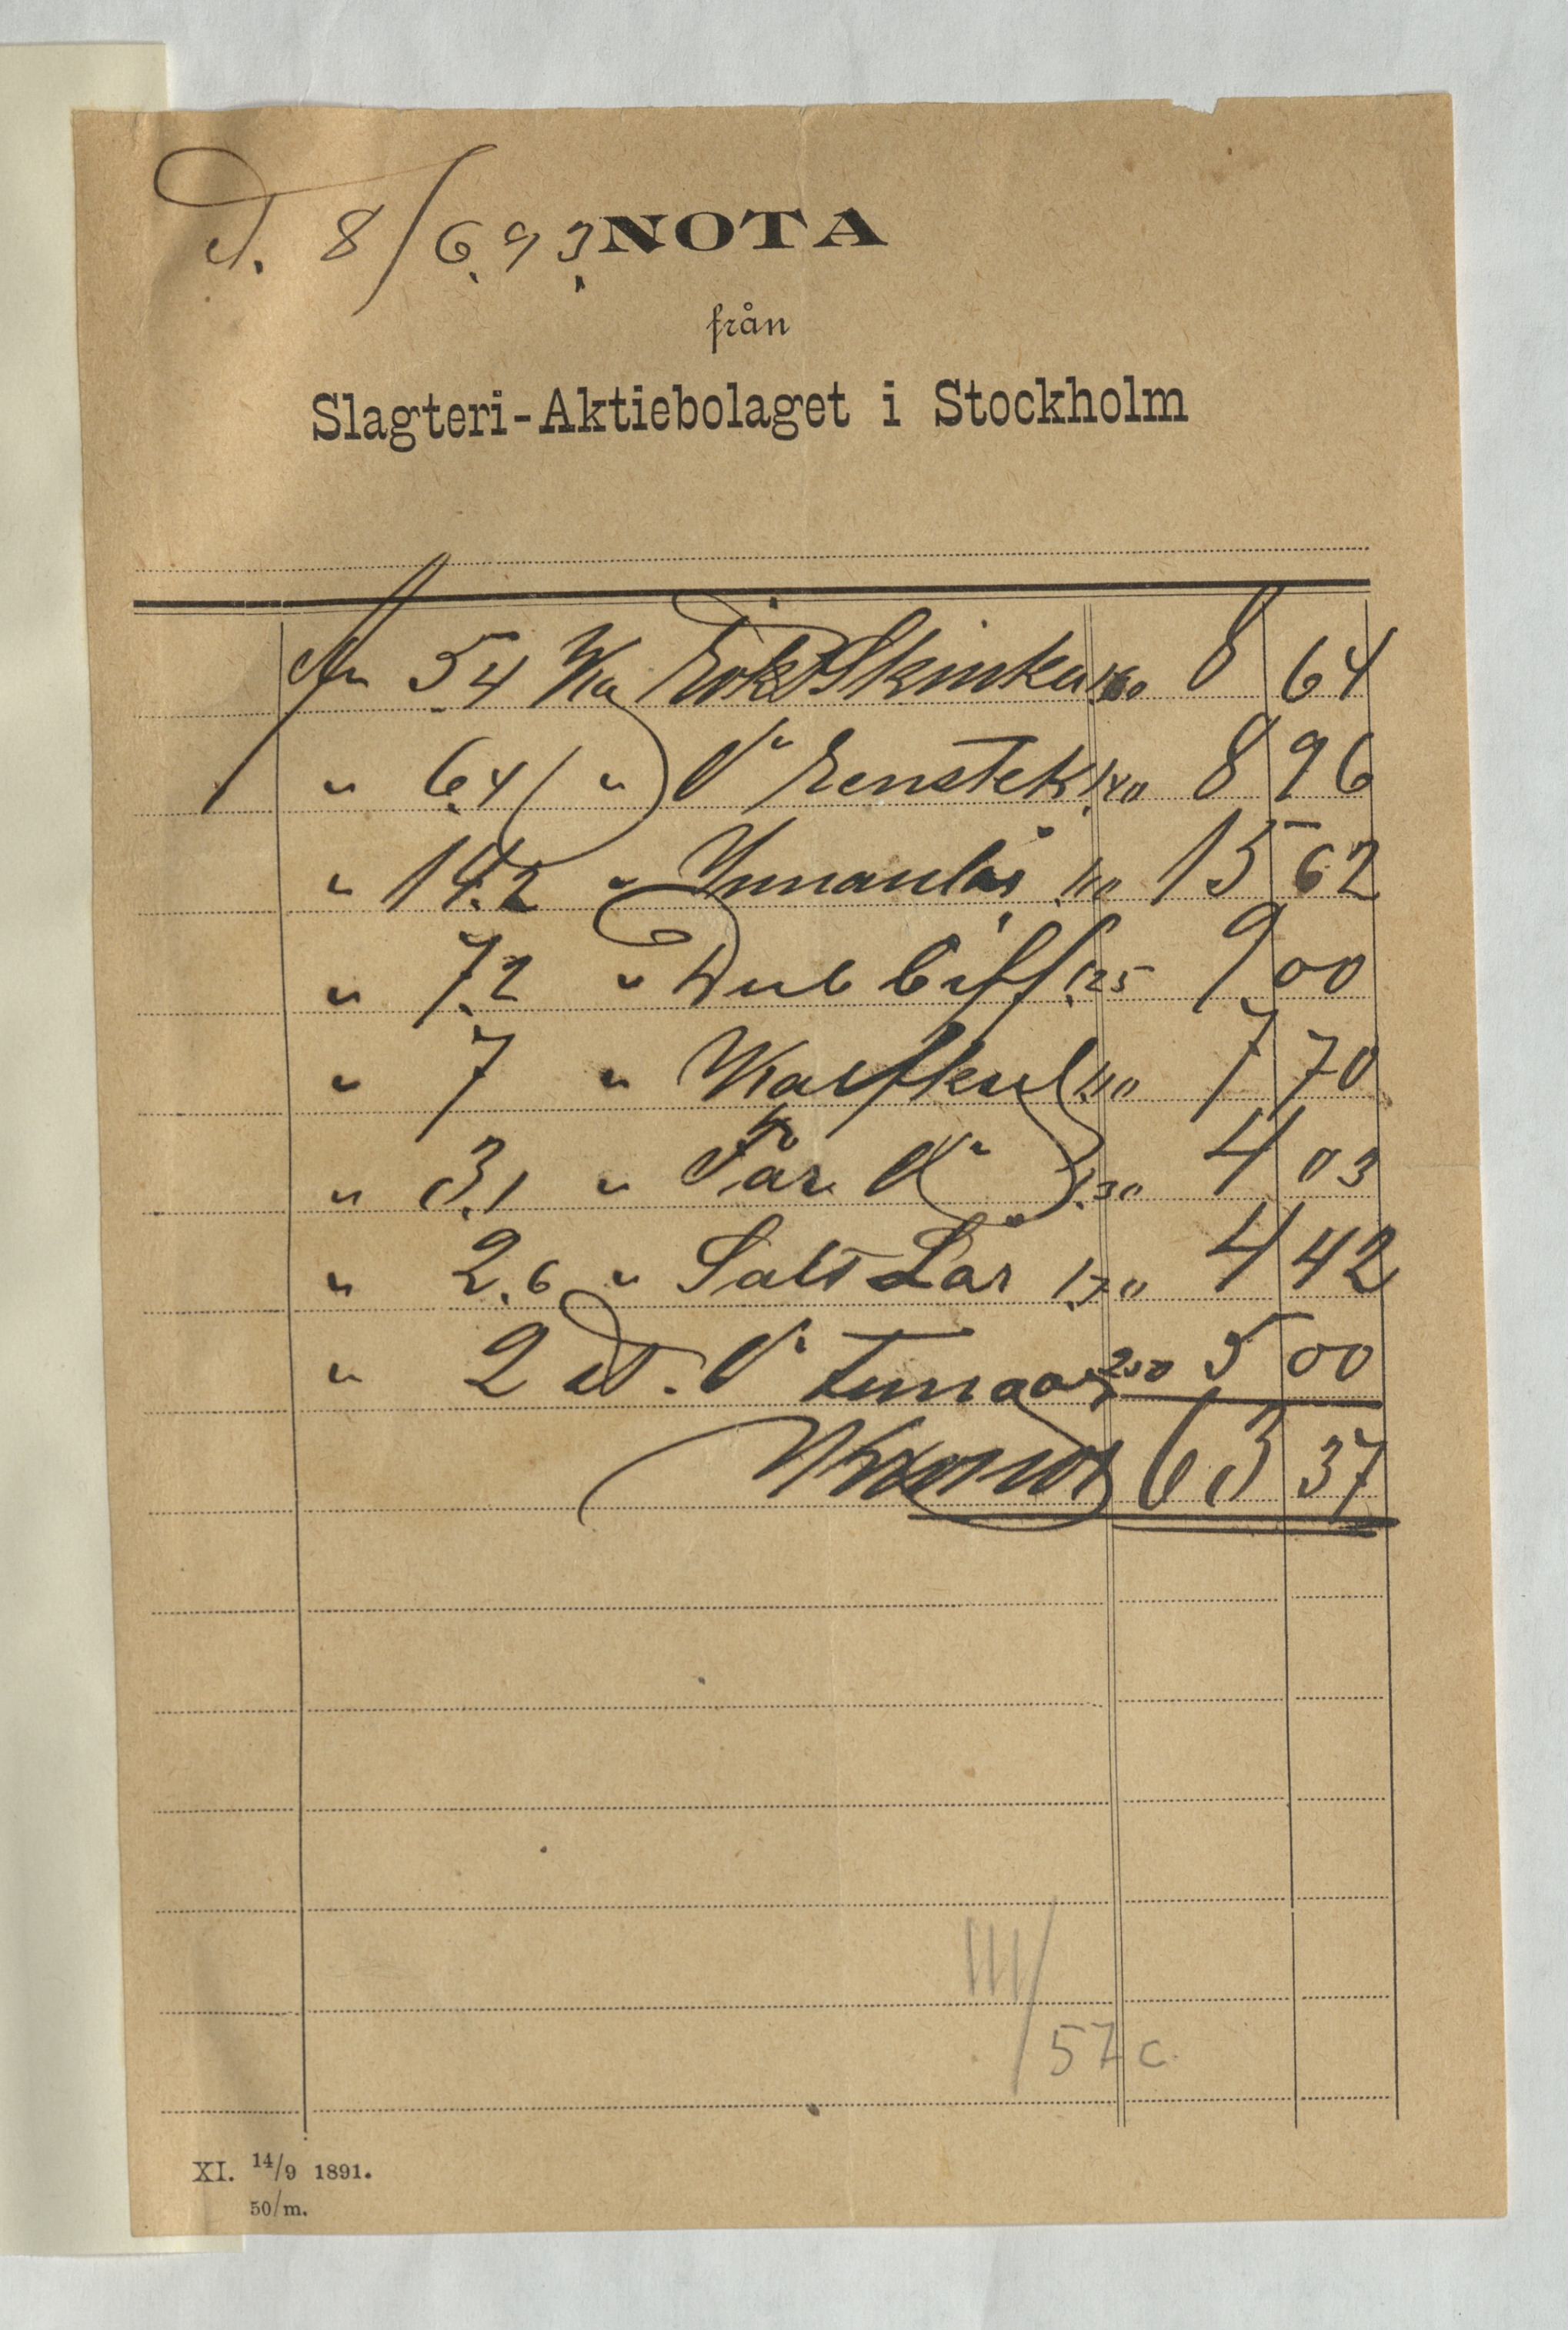 d. 8/6.93. NOTA
från
Slagteri-Aktiebolaget i Stockholm
An 5.4 Kg Rökt Skinka 1.60 8 64
" 6.4 " Do Renstek 1.40 8 96
" 14.2 " Innanlår 1.10 15 62
" 7.2 " Dub biff 1.25 9.00
" 7 " Kalfkyl 1.10 7 70
" 3.1 " Får Do 1.30 4 03
" 2.6 " Salt Lår 1.70 4 42
" 2 st. Do Tungor 2.50 5 00
Kronor 63 37
III/57c.
XI. 14/9 1891.
50/m.